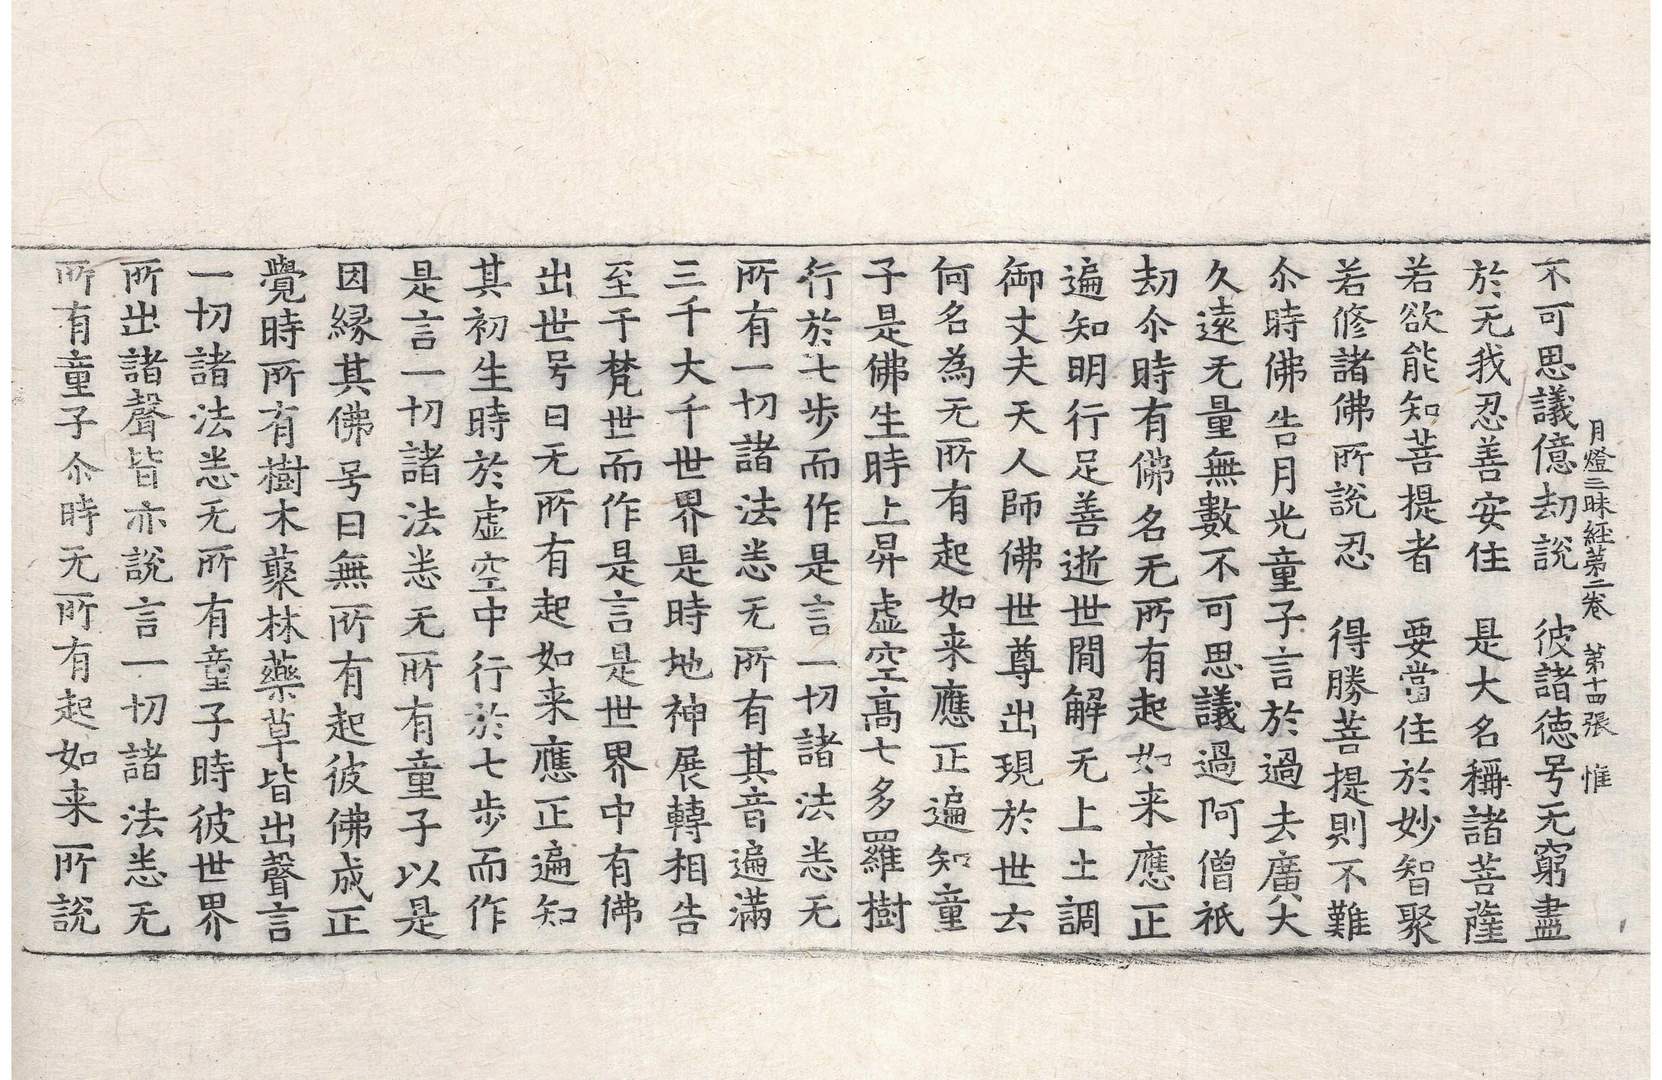 月燈三昧経第二卷　第十四張　惟
不可思議億劫說　彼諸德号无窮盡
於无我忍善安住　是大名稱諸菩薩
若欲能知菩提者　要當住於妙智聚
若修諸佛所說忍　得勝菩提則不難
尒時佛告月光童子言於過去廣大
久遠无量無數不可思議過阿僧祇
劫尒時有佛名无所有起如来應正
遍知明行足善逝世間解无上士調
御丈夫天人師佛世尊出現於世云
何名為无所有起如来應正遍知童
子是佛生時上昇虛空高七多羅樹
行於七步而作是言一切諸法悉无
所有一切諸法悉无所有其音遍滿
三千大千世界是時地神展轉相告
至于梵世而作是言是世界中有佛
出世号曰无所有起如来應正遍知
其初生時於虛空中行於七步而作
是言一切諸法悉无所有童子以是
因縁其佛号曰無所有起彼佛成正
覺時所有樹木藂林藥草皆出聲言
一切諸法悉无所有童子時彼世界
所出諸聲皆亦說言一切諸法悉无
所有童子尒時无所有起如来所說